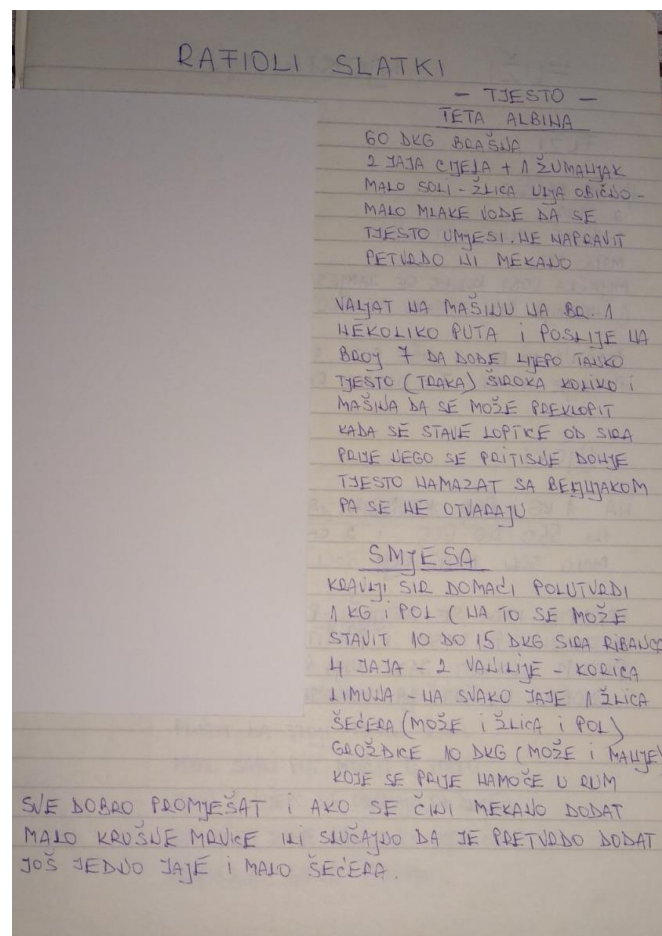 RAFIOLI SLATKI
- TJESTO -
TETA ALBINA
60 DKG BRAŠNA
2 JAJA CIJELA + 1 ŽUMANJAK
MALO SOLI - ŽLICA ULJA OBIČNO -
MALO MLAKE VODE DA SE
TJESTO UMJESI. NE NAPRAVIT
PETVRDO NI MEKANO
VALJAT NA MAŠINU NA BR. 1
NEKOLIKO PUTA i POSLIJE NA
BROJ 7 DA DOĐE LIJEPO TANKO
TJESTO (TRAKA) ŠIROKA KOLIKO i
MAŠINA DA SE MOŽE PREKLOPIT
KADA SE STAVE LOPTICE OD SIRA
PRIJE NEGO SE PRITISNE DONJE
TJESTO NAMAZAT SA BEELJAKOM
PA SE NE OTVARAJU
SMJESA
KRAVLJI SIR DOMAĆI POLUTVRDI
1 KG i POL (NA TO SE MOŽE
STAVIT 10 DO 15 DKG SIRA RIBANOG
4 JAJA - 2 VANILIJE - KORICA
LIMUNA - NA SVAKO JAJE 1 ŽLICA
ŠEĆERA (MOŽE i ŽLICA i POL)
GROŽĐICE 10 DKG (MOŽE i MANJE)
KOJE SE PRIJE NAMOČE U RUM
SVE DOBRO PROMJEŠAT i AKO SE ČINI MEKANO DODAT
MALO KRUŠNE MRVICE ILI SLUČAJNO DA JE PRETVRDO DODAT
JOŠ JEDNO JAJE i MALO ŠEĆERA.